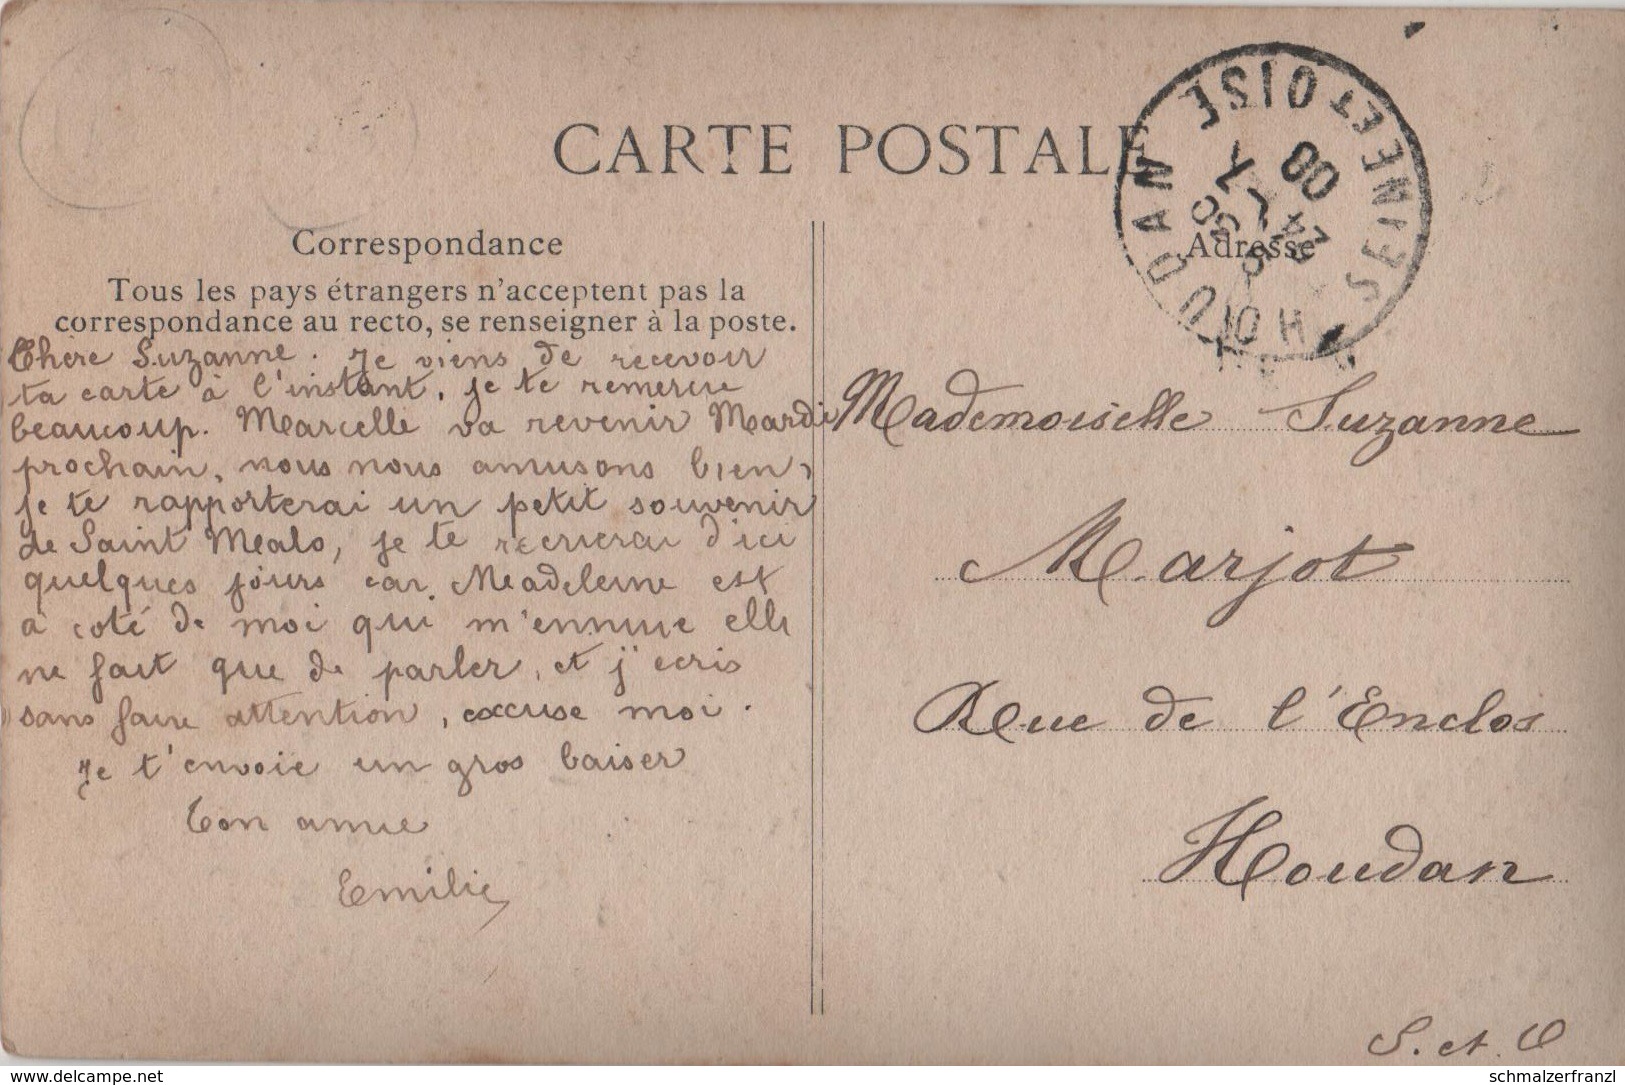 CARTE POSTALE
Correspondance
Tous les pays étrangers n'acceptent pas la
correspondance au recto, se renseigner à la poste.
Chère Suzanne. Je viens de recevoir
ta carte à l'instant, je te remercie
beaucoup. Marcelle va revenir Mardi
prochain, nous nous amusons bien,
je te rapporterai un petit souvenir
de Saint Malo, je te récrierai d'ici
quelques jours car Madeleine est
à coté de moi qui m'ennuie elle
ne fait que de parler, et j'ecris
sans faire attention, excuse moi.
Je t'envoie un gros baiser
Ton amie
Emilie
HOUDAN SEINE ET OISE
24
08
Adresse
Mademoiselle Suzanne
Marjot
Rue de l'Enclos
Houdan
S. et O
www.delcampe.net
schmalzerfranzl